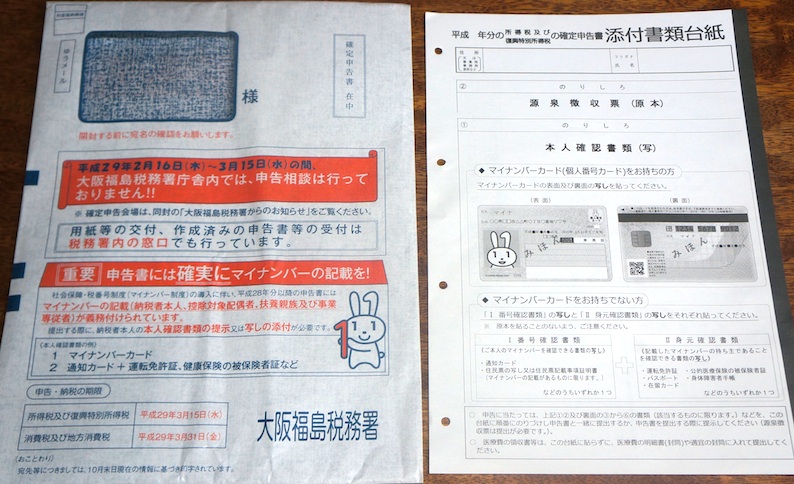 ゆうメール
様
確定申告書 在中
開封する前に宛名の確認をお願いします。
平成29年2月16日(木)〜3月15日(水)の間、
大阪福島税務署庁舎内では、申告相談は行って
おりません!!
※ 確定申告会場は、同封の「大阪福島税務署からのお知らせ」をご覧ください。
用紙等の交付、作成済みの申告書等の受付は
税務署内の窓口でも行っています。
重要 申告書には確実にマイナンバーの記載を!
社会保障・税番号制度〈マイナンバー制度〉の導入に伴い、平成28年分以降の申告書には
マイナンバーの記載(納税者本人、控除対象配偶者、扶養親族及び事業
専従者)が義務付けられています。
提出する際に、納税者本人の本人確認書類の提示又は写しの添付が必要です。
〔本人確認書類の例〕
1 マイナンバーカード
2 通知カード + 運転免許証、健康保険の被保険者証など
1
申告・納税の期限
所得税及び復興特別所得税 平成29年3月15日(水)
消費税及び地方消費税 平成29年3月31日(金)
大阪福島税務署
(おことわり)
宛先等につきましては、10月末日現在の情報に基づき印字されています。
平成 年分の所得税及び復興特別所得税の確定申告書 添付書類台紙
住所
フリガナ
氏名
② のりしろ
源泉徴収票(原本)
① のりしろ
本人確認書類(写)
◆ マイナンバーカード(個人番号カード)をお持ちの方
マイナンバーカードの表面及び裏面の写しを貼ってください。
(表面) (裏面)
みほん
みほん
◆ マイナンバーカードをお持ちでない方
「Ⅰ 番号確認書類」の写しと「Ⅱ 身元確認書類」の写しをそれぞれ貼ってください。
※ 原本を貼ることのないよう、ご注意ください。
Ⅰ 番号確認書類
《ご本人のマイナンバーを確認できる書類の写し》
・通知カード
・住民票の写し又は住民票記載事項証明書
(マイナンバーの記載があるものに限ります。)
などのうちいずれか1つ
Ⅱ 身元確認書類
《記載したマイナンバーの持ち主であることを確認できる書類の写し》
・運転免許証 ・公的医療保険の被保険者証
・パスポート ・身体障害者手帳
・在留カード
などのうちいずれか1つ
□ 申告に当たっては、上記①②及び裏面の③から⑥の書類(該当するものに限ります。)などを、この
台紙に順番にのりづけし申告書と一緒に提出するか、申告書を提出する際に提示してください(源泉徴
収票は提出が必要です。)。
□ 医療費の領収書等は、この台紙に貼らずに、医療費の明細書(封筒)や適宜の封筒に入れて提出してく
ださい。